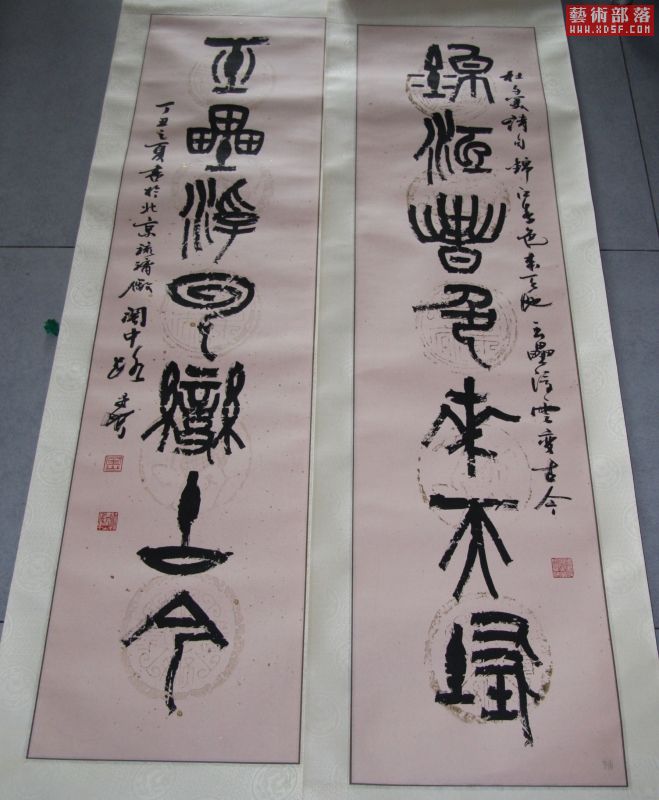 藝術部落
WWW.XDSF.COM
錦江春色來天地
杜工部詩句錦江春色來天地玉壘浮雲變古今
玉壘浮雲變古今
丁丑之夏書於北京琉璃廠閬中